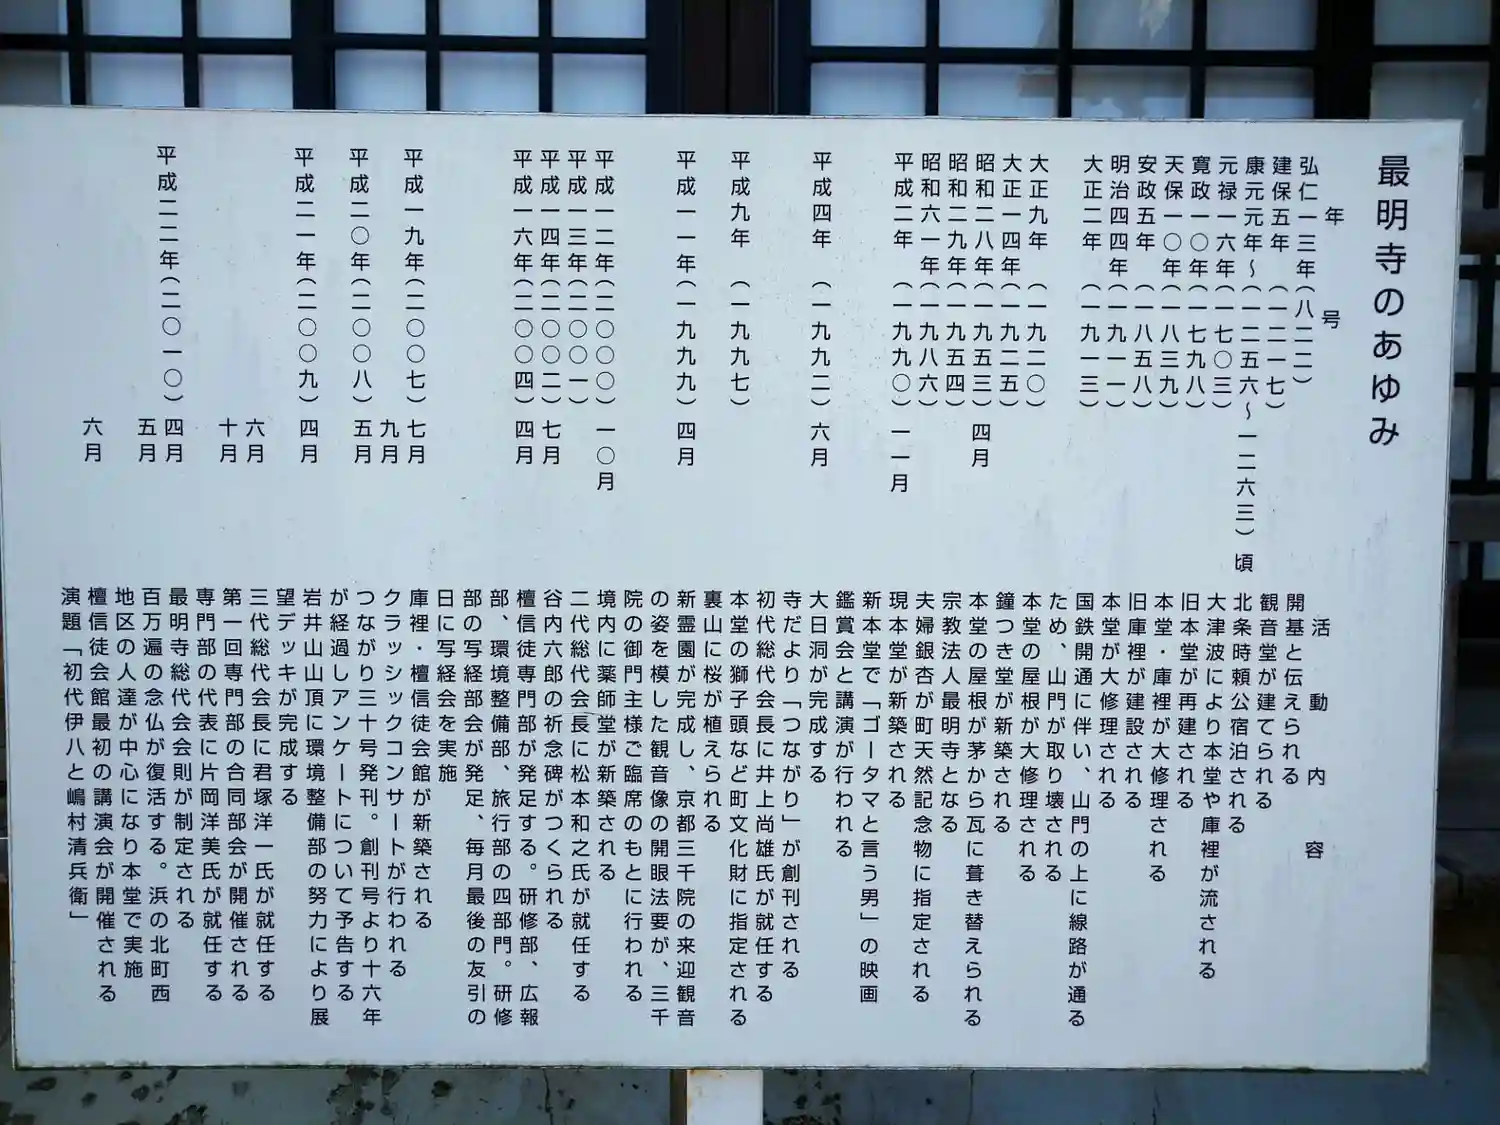 最明寺のあゆみ
年号 活動内容
弘仁一三年(八二二) 開基と伝えられる
建保五年(一二一七) 観音堂が建てられる
康元元年~(一二五六~一二六三)頃 北条時頼公宿泊される
元禄一六年(一七〇三) 大津波により本堂や庫裡が流される
寛政一〇年(一七九八) 旧本堂が再建される
天保一〇年(一八三九) 本堂・庫裡が大修理される
安政五年(一八五八) 旧庫裡が建設される
明治四四年(一九一一) 本堂が大修理される
大正二年(一九一三) 国鉄開通に伴い、山門の上に線路が通る
ため、山門が取り壊される
大正九年(一九二〇) 本堂の屋根が大修理される
大正一四年(一九二五) 鐘つき堂が新築される
昭和二八年(一九五三)四月 本堂の屋根が茅から瓦に葺き替えられる
昭和二九年(一九五四) 宗教法人最明寺となる
昭和六一年(一九八六) 夫婦銀杏が町天然記念物に指定される
平成二年(一九九〇)一一月 現本堂が新築される
新本堂で「ゴータマと言う男」の映画
鑑賞会と講演が行われる
平成四年(一九九二)六月 大日洞が完成する
寺だより「つながり」が創刊される
初代総代会長に井上尚雄氏が就任する
平成九年(一九九七) 本堂の獅子頭など町文化財に指定される
裏山に桜が植えられる
平成一一年(一九九九)四月 新霊園が完成し、京都三千院の来迎観音
の姿を模した観音像の開眼法要が、三千
院の御門主様ご臨席のもとに行われる
平成一二年(二〇〇〇)一〇月 境内に薬師堂が新築される
平成一三年(二〇〇一) 二代総代会長に松本和之氏が就任する
平成一四年(二〇〇二)七月 谷内六郎の祈念碑がつくられる
平成一六年(二〇〇四)四月 檀信徒専門部が発足する。研修部、広報
部、環境整備部、旅行部の四部門。研修
部の写経部会が発足、毎月最後の友引の
日に写経会を実施
平成一九年(二〇〇七)七月 庫裡・檀信徒会館が新築される
九月 クラッシックコンサートが行われる
平成二〇年(二〇〇八)五月 つながり三十号発刊。創刊号より十六年
が経過しアンケートについて予告する
平成二一年(二〇〇九)四月 岩井山山頂に環境整備部の努力により展
望デッキが完成する
六月 三代総代会長に君塚洋一氏が就任する
十月 第一回専門部の合同部会が開催される
専門部の代表に片岡洋美氏が就任する
平成二二年(二〇一〇)四月 最明寺総代会会則が制定される
五月 百万遍の念仏が復活する。浜の北町西
地区の人達が中心になり本堂で実施
六月 檀信徒会館最初の講演会が開催される
演題「初代伊八と嶋村清兵衛」